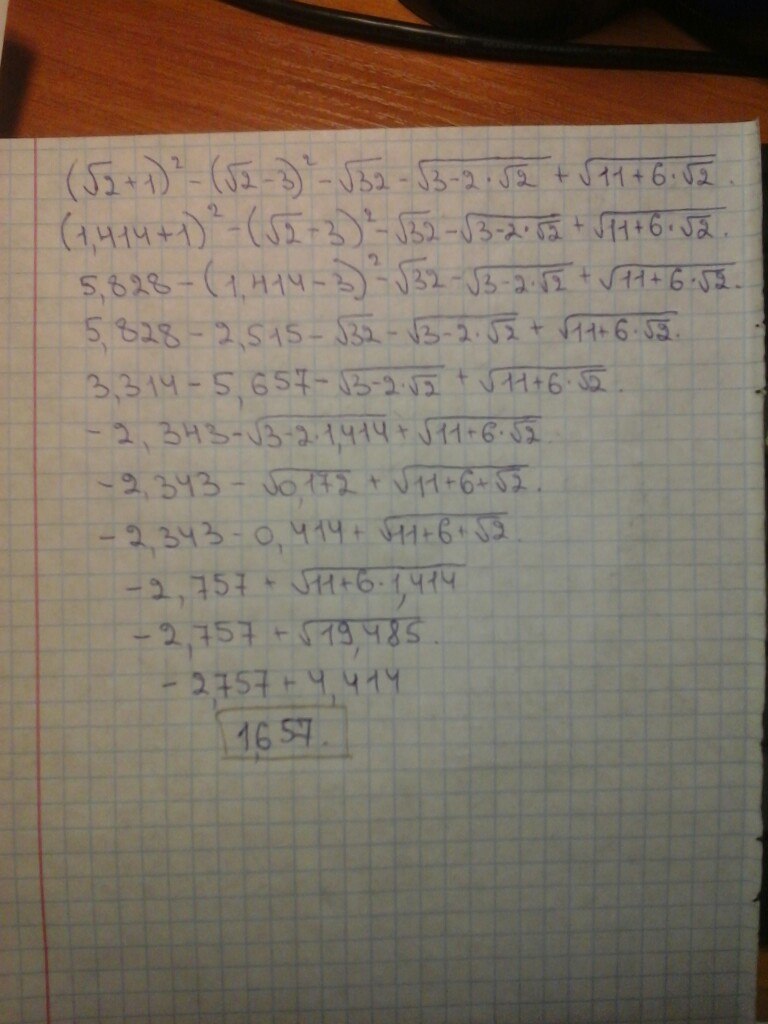 (√2+1)² - (√2-3)² - √32 - √(3-2·√2) + √(11+6·√2).
(1,414+1)² - (√2-3)² - √32 - √(3-2·√2) + √(11+6·√2).
5,828 - (1,414-3)² - √32 - √(3-2·√2) + √(11+6·√2).
5,828 - 2,515 - √32 - √(3-2·√2) + √(11+6·√2).
3,314 - 5,657 - √(3-2·√2) + √(11+6·√2).
-2,343 - √(3-2·1,414) + √(11+6·√2).
-2,343 - √0,172 + √(11+6+√2).
-2,343 - 0,414 + √(11+6+√2).
-2,757 + √(11+6·1,414)
-2,757 + √19,485.
-2,757 + 4,414
1,657.